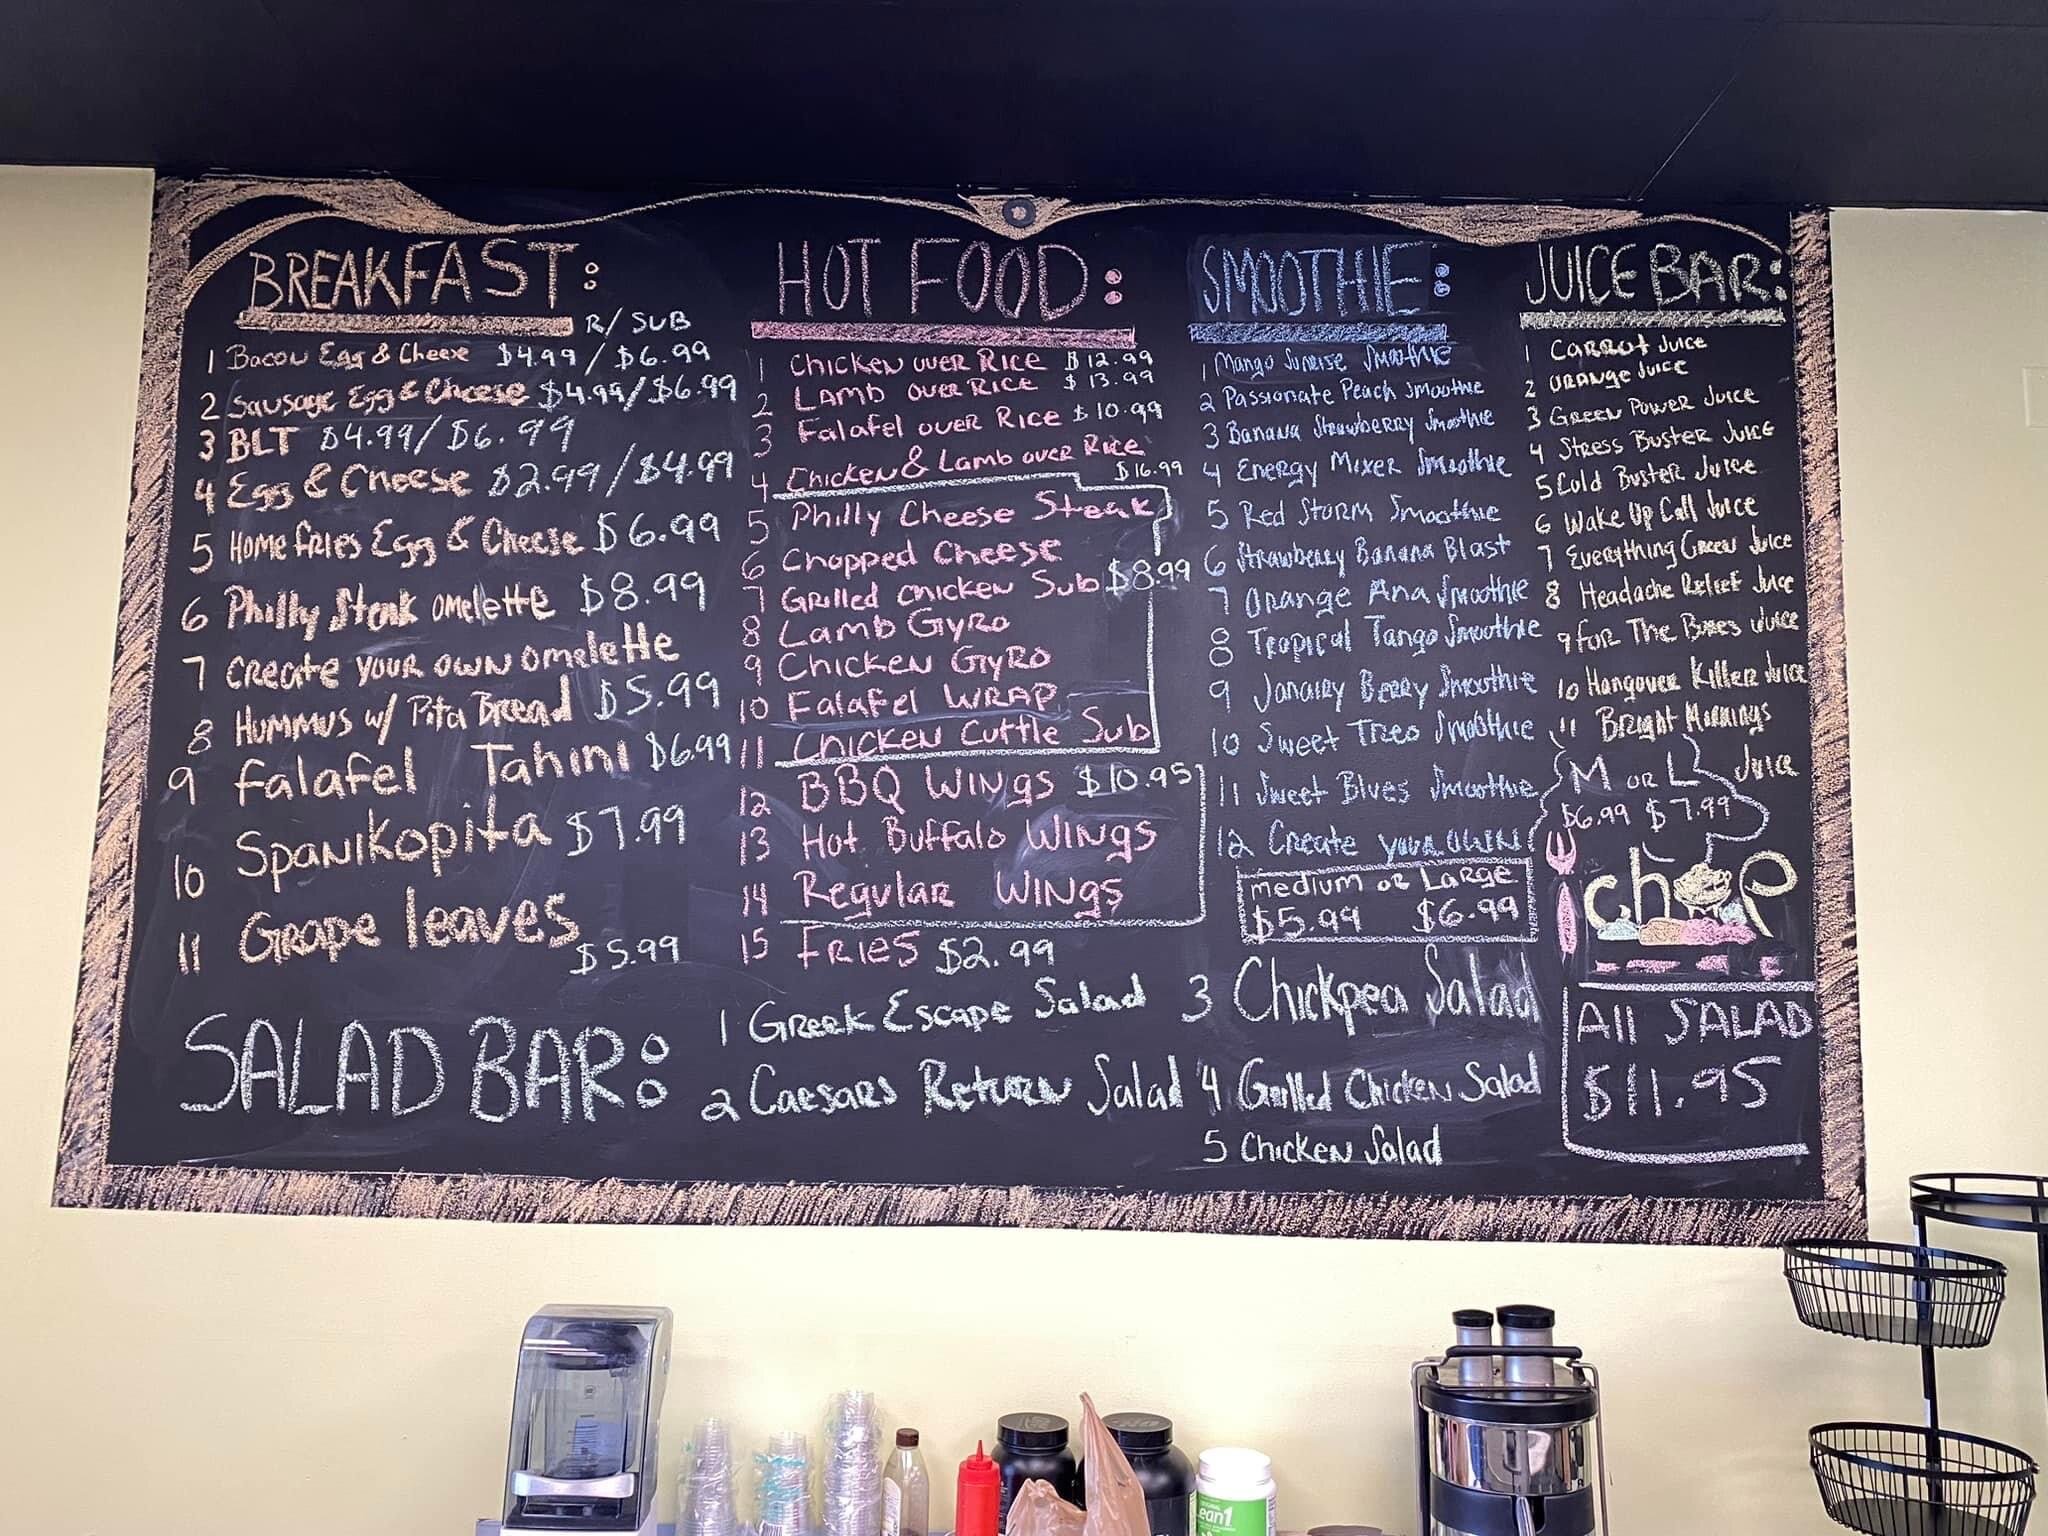 BREAKFAST:
R/ SUB
1 Bacon Egg & Cheese $4.99 / $6.99
2 Sausage Egg & Cheese $4.99/$6.99
3 BLT $4.99/$6.99
4 Egg & Cheese $2.99/$4.99
5 Home fries Egg & Cheese $6.99
6 Philly Steak omelette $8.99
7 Create your own omelette
8 Hummus w/ Pita Bread $5.99
9 Falafel Tahini $6.99
10 Spanikopita $7.99
11 Grape leaves
$5.99
HOT FOOD:
1 Chicken over Rice $12.99
2 Lamb over Rice $13.99
3 Falafel over Rice $10.99
4 Chicken & Lamb over Rice
$16.99
5 Philly Cheese Steak
6 Chopped Cheese
7 Grilled chicken Sub $8.99
8 Lamb Gyro
9 Chicken Gyro
10 Falafel WRAP
11 Chicken Cuttle Sub
12 BBQ WINgs $10.95
13 Hot Buffalo WINgs
14 Regular WINgs
15 FRIES $2.99
SMOOTHIE:
1 Mango Sunrise Smoothie
2 Passionate Peach Smoothie
3 Banana Strawberry Smoothie
4 Energy Mixer Smoothie
5 Red Storm Smoothie
6 Strawberry Banana Blast
7 Orange Ana Smoothie
8 Tropical Tango Smoothie
9 Janairy Berry Smoothie
10 Sweet Treo Smoothie
11 Sweet Blues Smoothie
12 Create your OWN
medium or Large
$5.99 $6.99
JUICE BAR:
1 Carrot Juice
2 Orange Juice
3 Green Power Juice
4 Stress Buster Juice
5 Cold Buster Juice
6 Wake Up Call Juice
7 Everything Green Juice
8 Headache Relief Juice
9 For The Bones Juice
10 Hangover Killer Juice
11 Bright Mornings
Juice
M or L
$6.99 $7.99
chop
SALAD BAR:
1 Greek Escape Salad
2 Caesars Return Salad
3 Chickpea Salad
4 Grilled Chicken Salad
5 Chicken Salad
All SALAD
$11.95